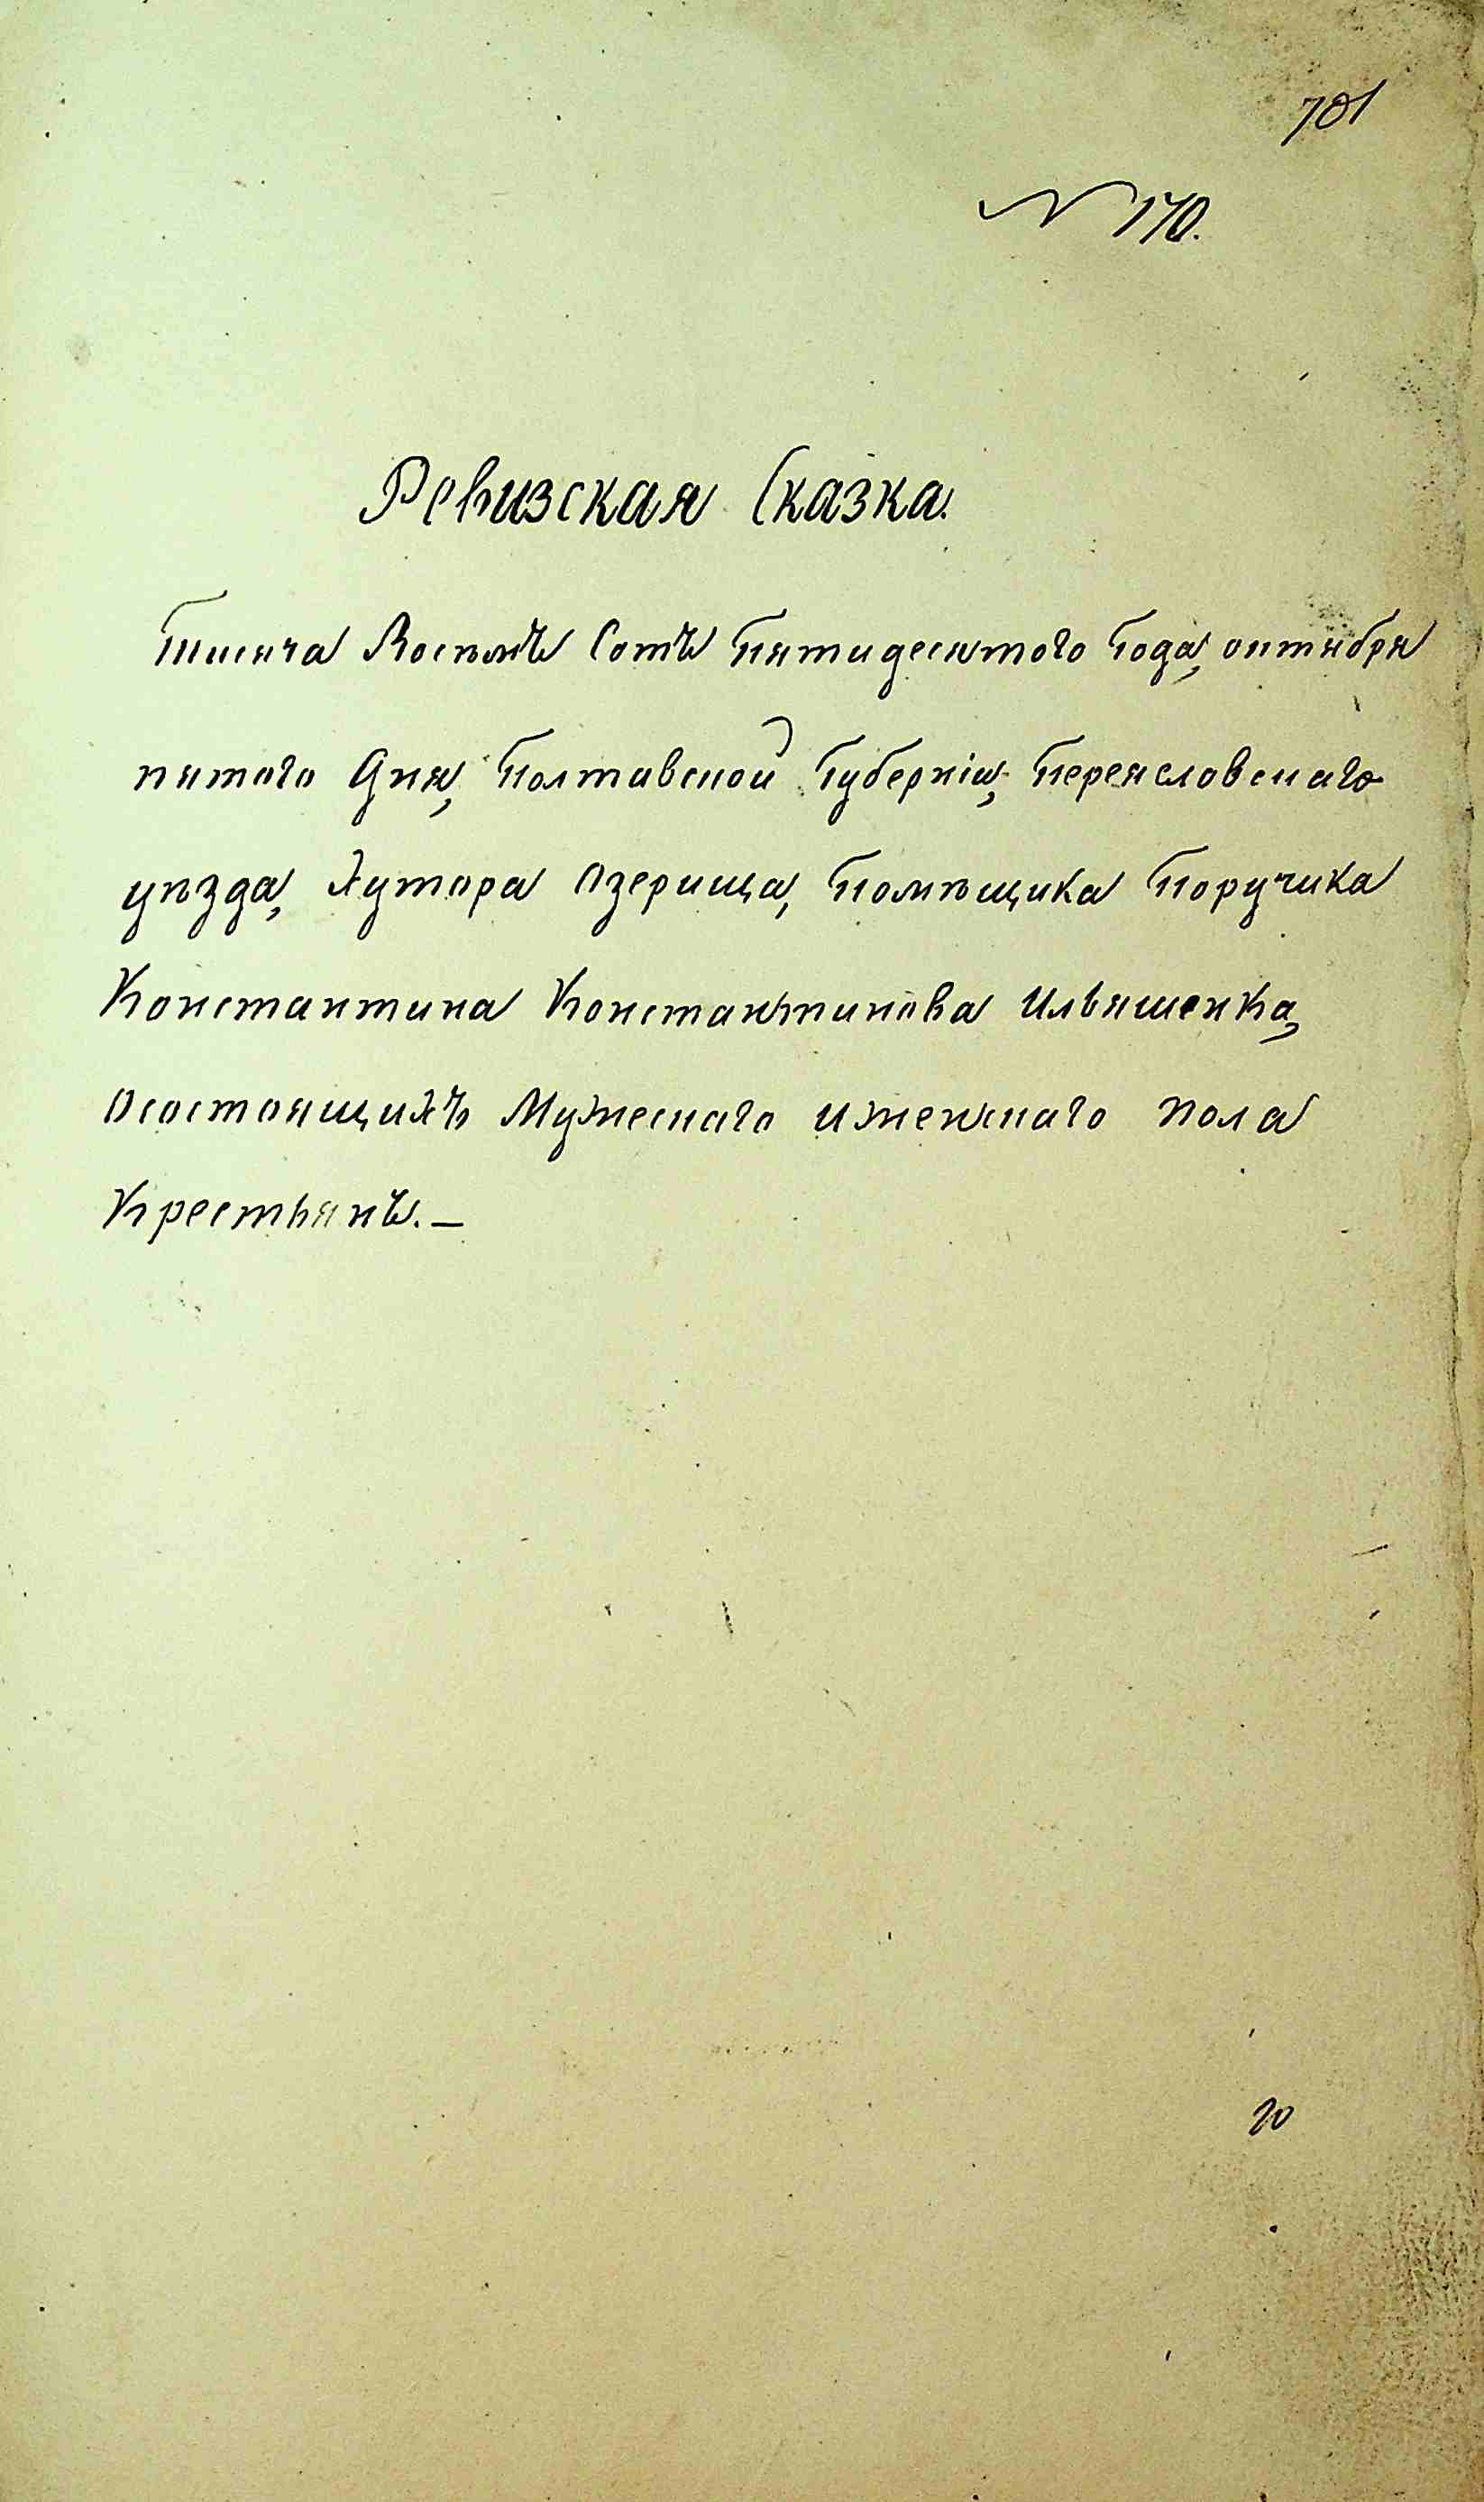 701
N 170.
Ревизская Сказка.
Тисяча Восемъ Сотъ Пятидесятого Года, октября
пятого Дня, Полтавской Губерніи, Переясловскаго
уѣзда, Хутора Озерища, Помѣщика Поручика
Константина Константинова Ильяшенка,
осостоящихъ Мужескаго иженскаго пола
Крестьянъ.—
20